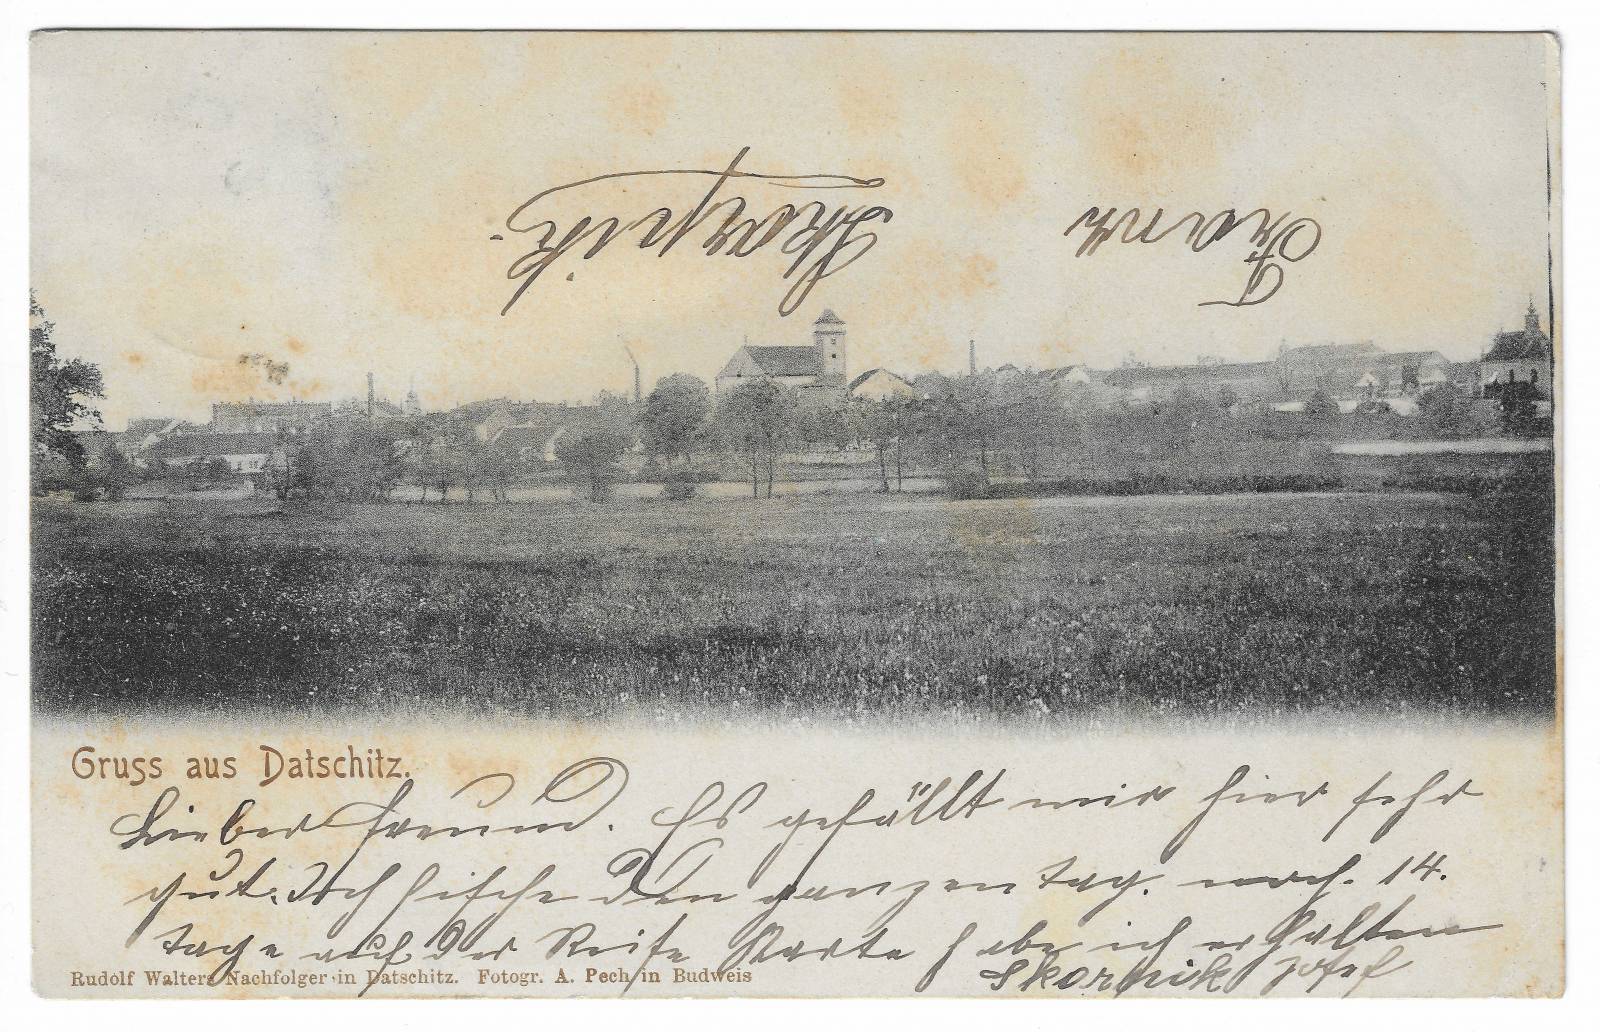 Franz Skornik.
Gruss aus Datschitz.
Lieber Freund. Es gefällt mir hier sehr
gut. Ich fische den ganzen tag. noch. 14.
tage auf der Reise Karte habe ich erhalten
Skornik Josef
Rudolf Walters Nachfolger in Datschitz. Fotogr. A. Pech in Budweis